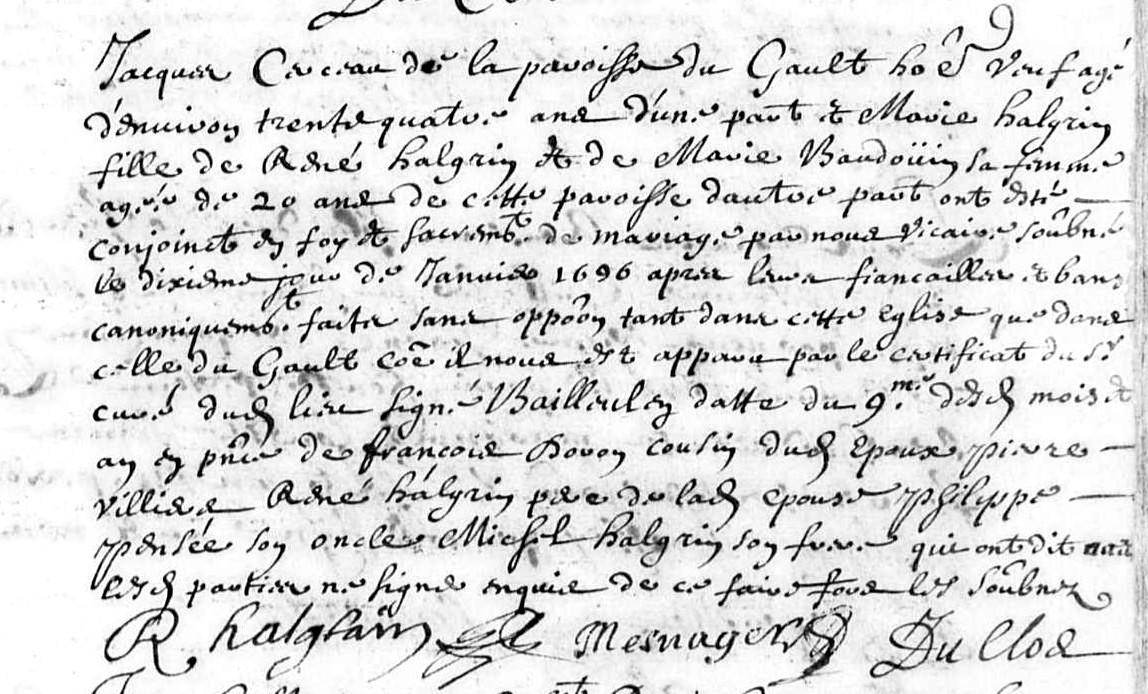 Jacques Cerceau de la paroisse du Gault hôe veuf agé
d'environ trente quatre ans d'une part et Marie halgrin
fille de René halgrin et de Marie Baudoüin sa femme
agée de 20 ans de cette paroisse dautre part ont esté
conjinct en foy et sacremt. de mariage par nous vicaire soûbné
le dixieme jour de Janvier 1696 apres leurs fiancailles et bans
canoniquemt. faits sans oppôon tant dans cette Eglise que dans
celle du Gault coê il nous est apparu par le certificat du Sr
curé dud lieu signé Bailleul en datte du 9.me desd mois et
an en pñce de francois Doron cousin dud Epoux, pierre
villiers René hálgrin pere de lad epouse Philippe
Pensée son oncle Michel halgrin son frere qui ont dit avec
lesd parties ne signe enquis de ce faire fors les soûbnez
R halgrain Mesnager Du Clos